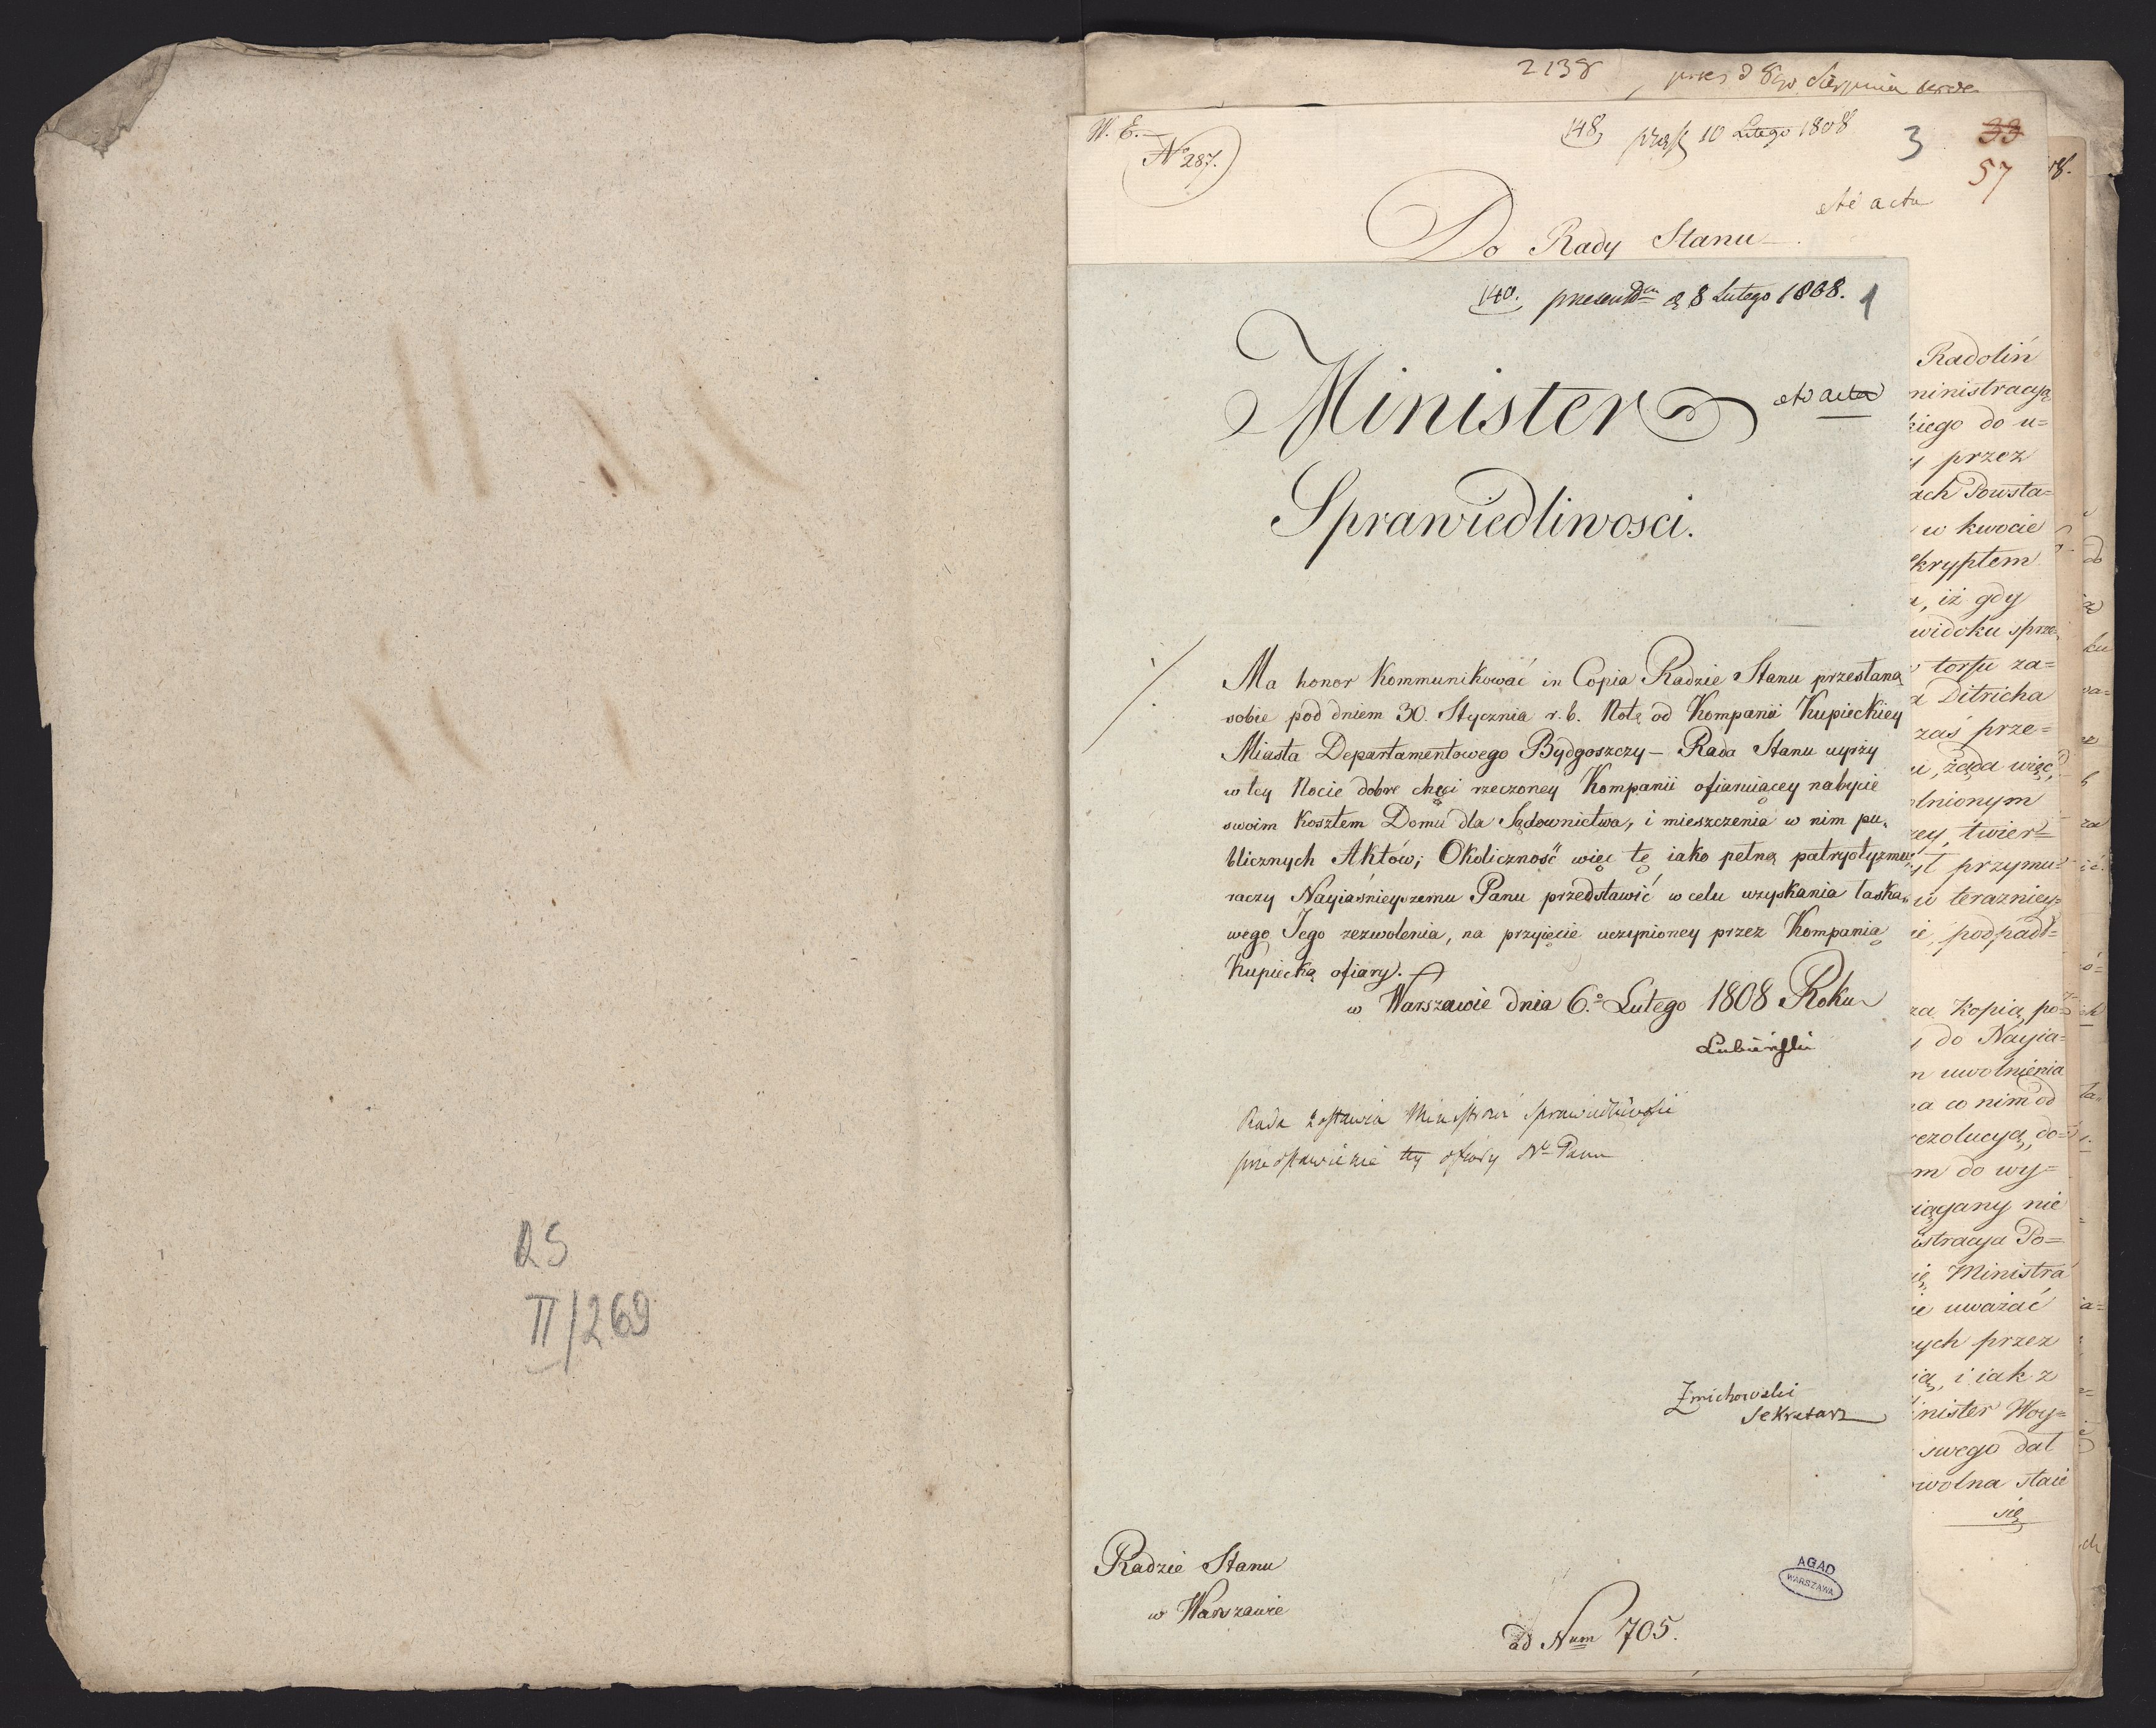 RS
II/269
2138
W. E.
No 287.
148, 10 Lutego 1808
3
33
57
ad acta
Do Rady Stanu
140. praesent 8 Lutego 1808.
1
Minister
ad acta
Sprawiedliwosci.
Ma honor Kommunikować in Copia Radzie Stanu przesłaną
sobie pod dniem 30. Stycznia r. b. Notę od Kompanii Kupieckiey
Miasta Departamentowego Bydgoszczy – Rada Stanu uyrzy
w tey Nocie dobre chęci rzeczoney Kompanii ofiaruiącey nabycie
swoim Kosztem Domu dla Sądownictwa, i mieszczenia w nim pu„
blicznych Aktów; Okoliczność więc tę iako pełną patryotyzmu
raczy Nayiaśnieyszemu Panu przedstawić w celu uzyskania łaska„
wego Jego zezwolenia, na przyięcie uczynioney przez Kompanią
Kupiecką ofiary.
w Warszawie dnia 6.o Lutego 1808 Roku
Lubieński
Rada zostawia Ministrowi Sprawiedliwości
przedstawienie tey ofiary No Panu
Zmichowski
Sekretarz
Radzie Stanu
w Warszawie
ad Num 705.
AGAD
WARSZAWA
Radolin
ministracyą
kiego do u=
przez
ach Powsta=
w kwocie
kryptem
, iż gdy
widoku sprze
torfu za=
a Ditricha
zaś prze=
i, żąda więc,
olnionym
zey, twier=
przymu=
terazniey=
podpadł=
za Kopią po=
do Nayia=
m uwolnienia
a co nim od
rezolucyą do=
m do wy=
iągany nie
istracya Po=
ię Ministra
ie uważać
ych przez
ią, i iak z
inister Woy=
swego dał
wolna staie
się